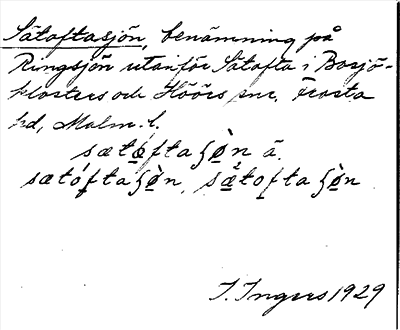 Sätoftasjön, benämning på
Ringsjön utanför Sätofta i Bosjö-
klosters och Höörs snr, Frosta
hd, Malm. l.
sætóftaʃø̀n ä.
sætóftaʃø̀n, sǽtoftaʃø̀n
I. Ingers 1929